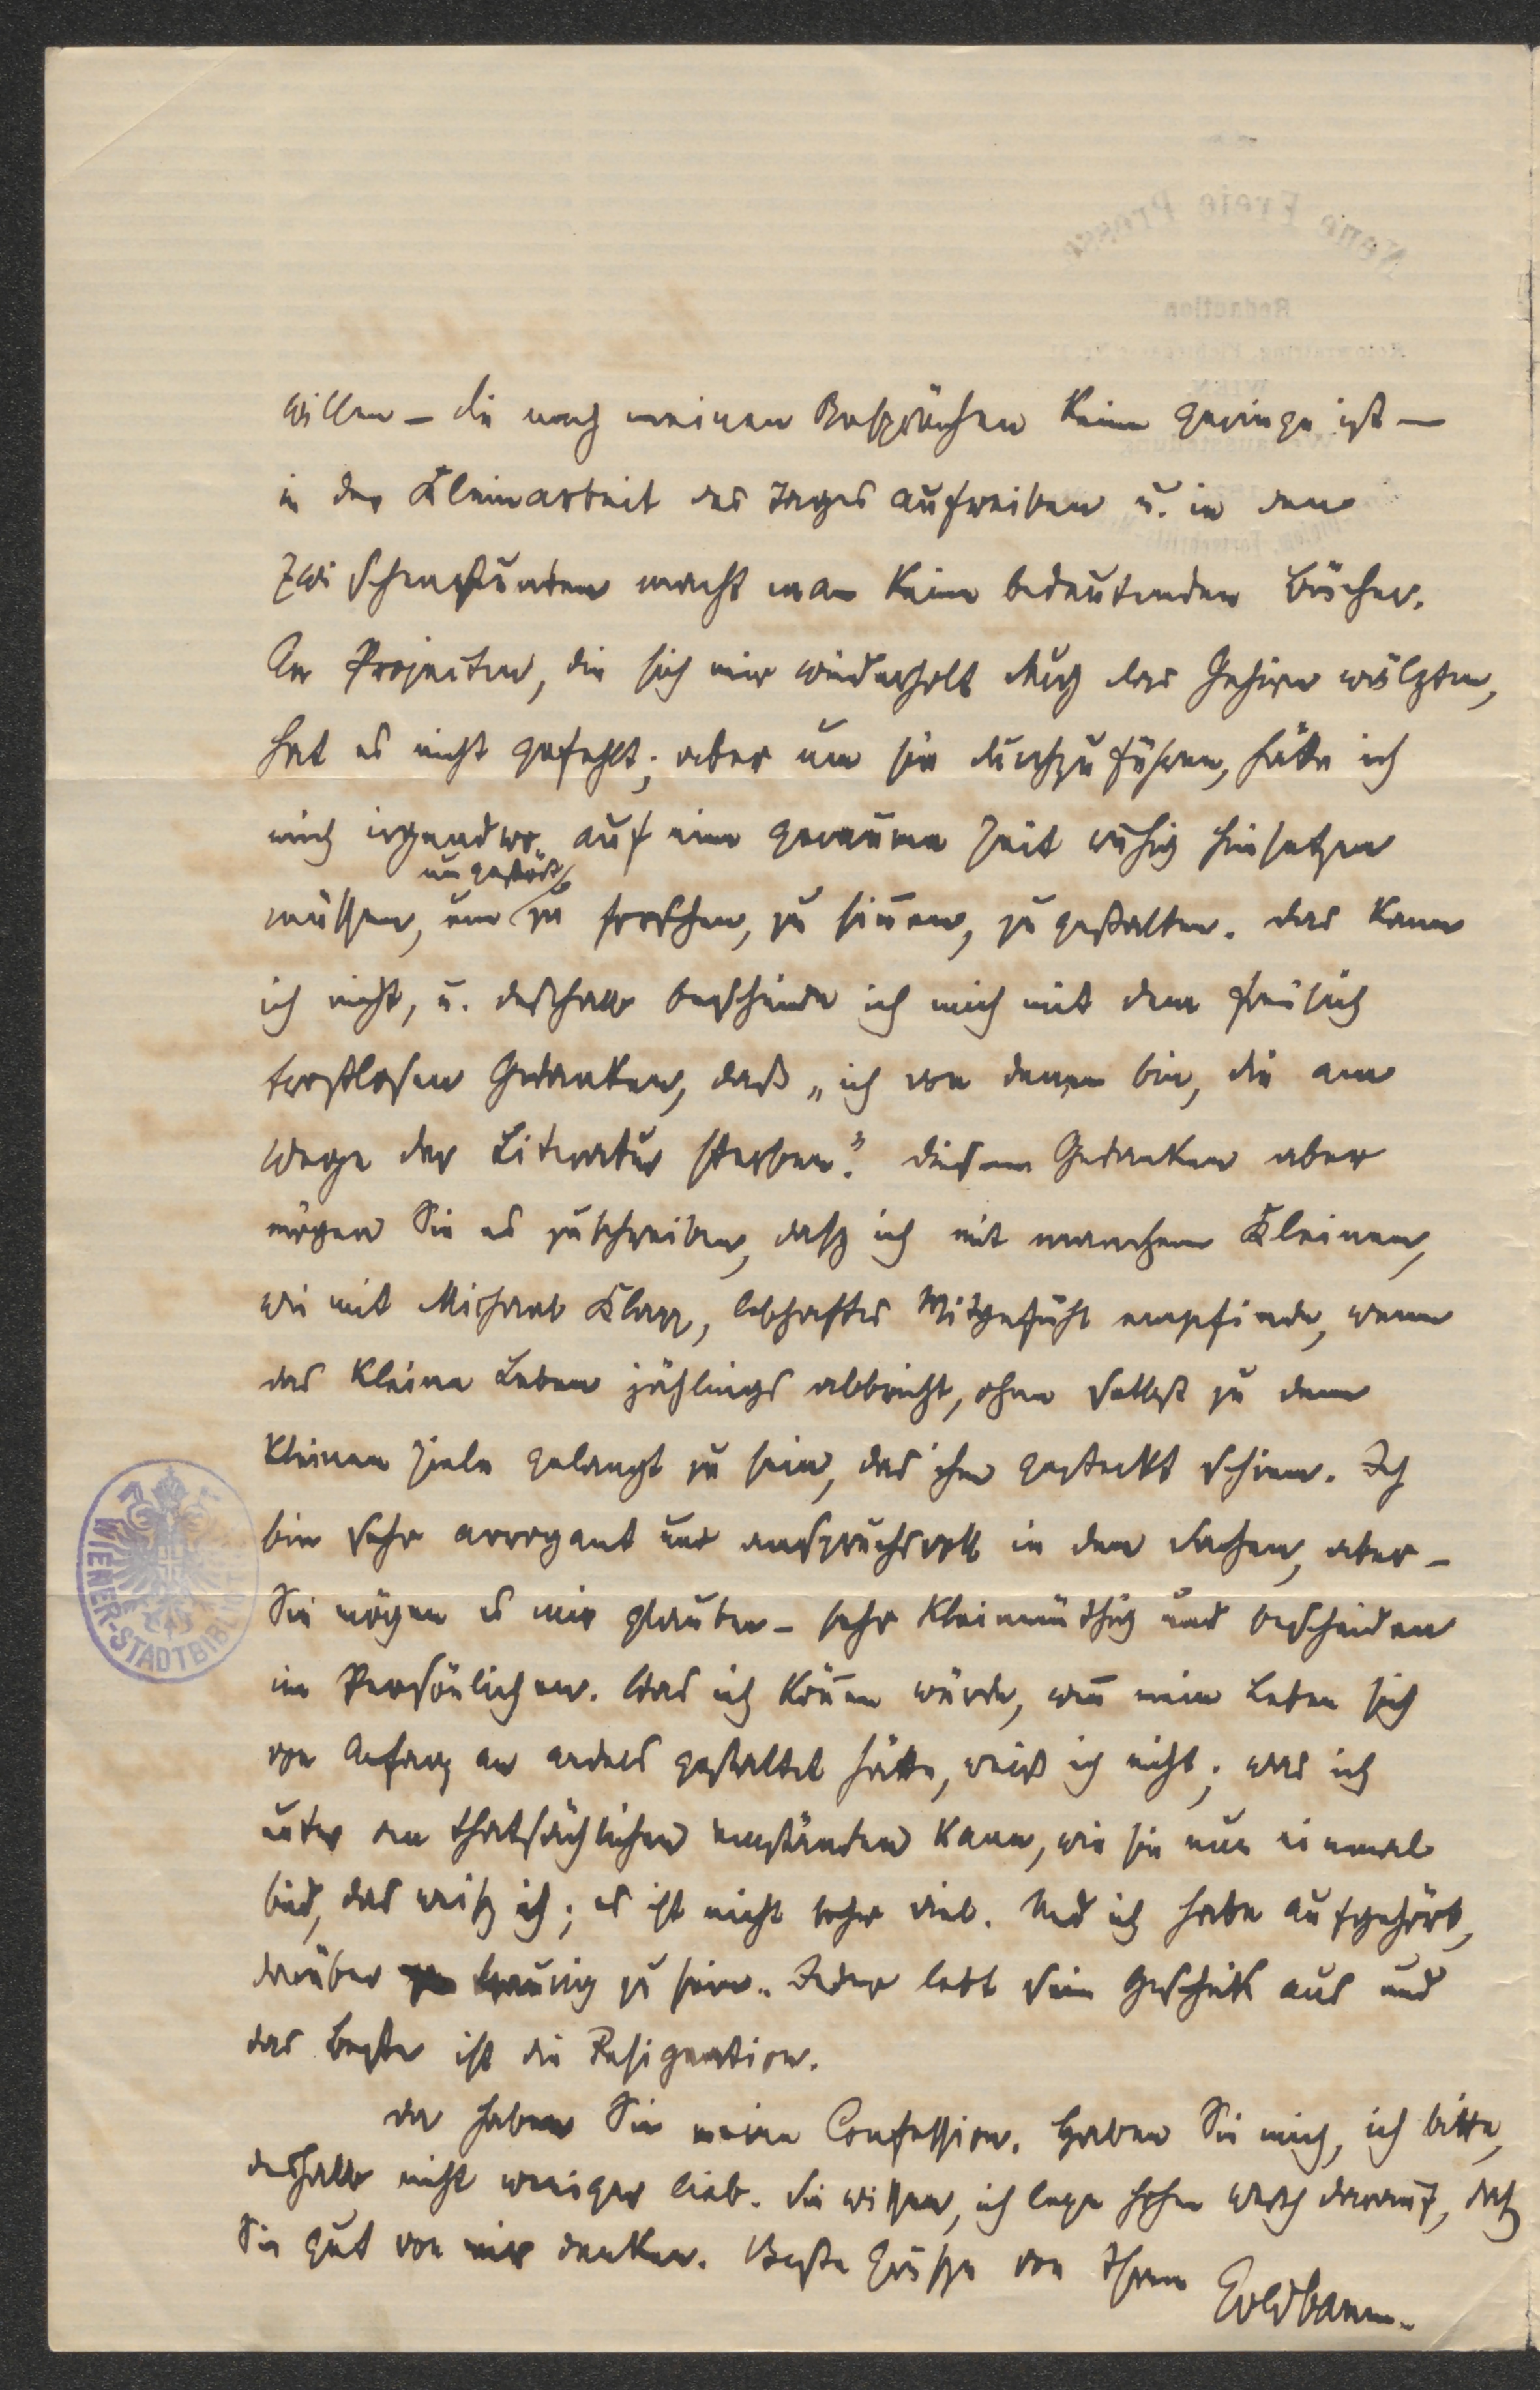 willen – die nach meinen Ansprüchen keine geringe ist –
in der Kleinarbeit des Tages aufreiben u. in den
Zwischenstunden macht man keine bedeutenden Bücher.
An Projecten, die sich mir wiederholt durch das Gehirn wälzten,
hat es nicht gefehlt; aber um sie durchzuführen, hätte ich
mich irgendwo auf eine geraume Zeit ruhig hinsetzen
ungestört
müssen, um zu forschen, zu sinnen, zu gestalten. Das kann
ich nicht, u. deßhalb bescheide ich mich mit dem freilich
trostlosen Gedanken, daß „ich von denen bin, die am
Wege der Literatur sterben“. Diesem Gedanken aber
mögen Sie es zuschreiben, daß ich mit manchem Kleinen,
wie mit Michael Klapp, lebhaftes Mitgefühl empfinde, wenn
das kleine Leben jählings abbricht, ohne selbst zu dem
kleinen Ziele gelangt zu sein, das ihm gesteckt schien. Ich
bin sehr arrogant und anspruchsvoll in den Sachen, aber –
Sie mögen es mir glauben – sehr kleinmüthig und bescheiden
im Persönlichen. Was ich können würde, wenn mein Leben sich
von Anfang an anders gestaltet hätte, weiß ich nicht; was ich
unter den thatsächlichen Umständen kann, wie sie nun einmal
sind, das weiß ich; es ist nicht sehr viel. Und ich habe aufgehört,
darüber traurig zu sein. Jeder lebt sein Geschick aus und
das Beste ist die Resignation.
Da haben Sie meine Confession. Haben Sie mich, ich bitte,
deßhalb nicht weniger lieb. Sie wissen, ich lege hohen Werth darauf, daß
Sie gut von mir denken. Beste Grüße von Ihrem
Goldbaum.
WIENER-STADTBIBL
Neue Freie Presse
Redaction
WIEN